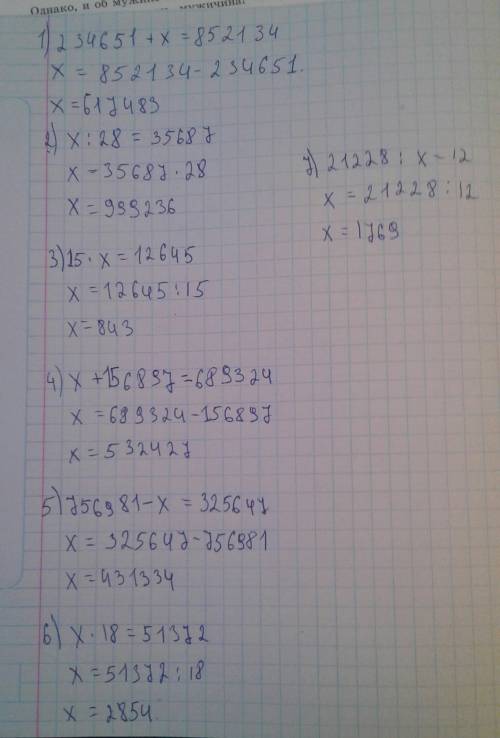 Однако, и об
1) 234651 + x = 852134
x = 852134 - 234651.
x = 617483
2) x : 28 = 35687
x - 35687 · 28
x = 999236
3) 15 · x = 12645
x = 12645 : 15
x - 843
4) x + 156897 = 689324
x = 689324 - 156897
x = 532427
5) 756981 - x = 325647
x = 325647 - 756981
x = 431334
6) x · 18 = 51372
x = 51372 : 18
x = 2854
7) 21228 : x - 12
x = 21228 : 12
x = 1769